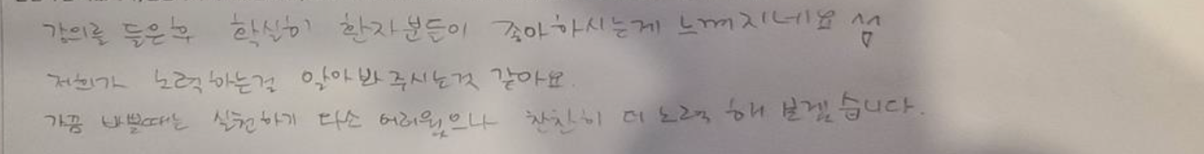 강의를 들은후 확실히 환자분들이 좋아하시는게 느껴지네요
저희가 노력하는걸 알아봐주시는것 같아요.
가끔 바쁠때는 실천하기 다소 어려웠으나 찬찬히 더 노력해 보겠습니다.